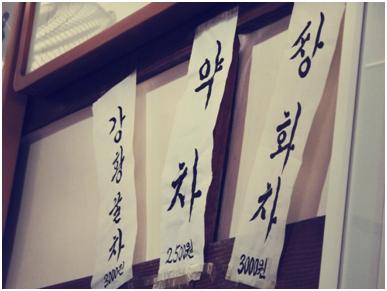 3000원
약차
2500원
쌍화차
3000원